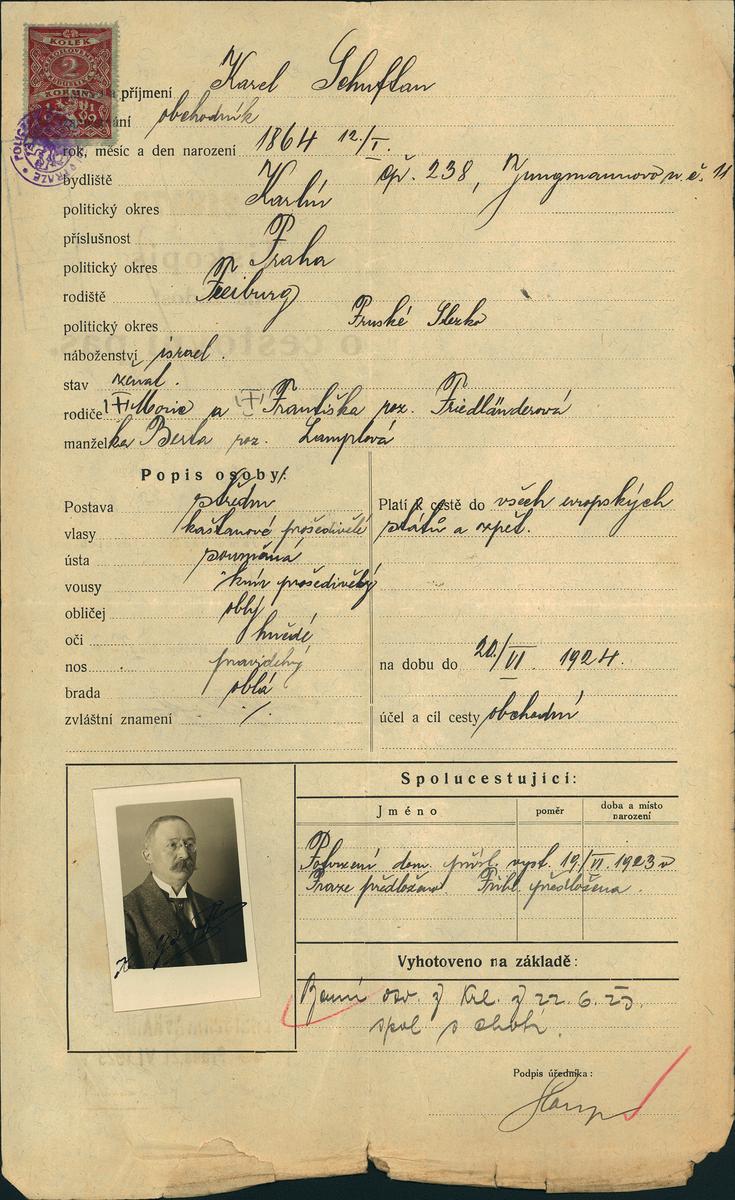 KOLEK
2
KORUNY
1919
POLICE PRAZE
a příjmení Karel Schuftan
obchodník
rok, měsíc a den narození 1864 12./I.
bydliště čp. 238, Jungmannova u. č. 11
politický okres Karlín
příslušnost
politický okres Praha
rodiště Freiburg
politický okres Pruské Slezko
náboženství israel.
stav ženat.
rodiče Moric a Františka roz. Friedländerová
manželka Berta roz. Lamplová
Popis osoby:
Postava střední
vlasy kaštanové prošedivělé
ústa souměrná
vousy knír prošedivělý
obličej oblý
oči hnědé
nos pravidelný
brada oblá
zvláštní znamení ./.
Platí k cestě do všech evropských
států a zpět.
na dobu do 20./VI. 1924.
účel a cíl cesty obchodní
Spolucestující:
Jméno poměr doba a místo narození
Potvrzení dom. přísl. vyst. 19/VI. 1923 v
Praze předloženo. Přihl. předložena.
Vyhotoveno na základě:
osv. z 22. 6. 23
spol s chotí.
Podpis úředníka: